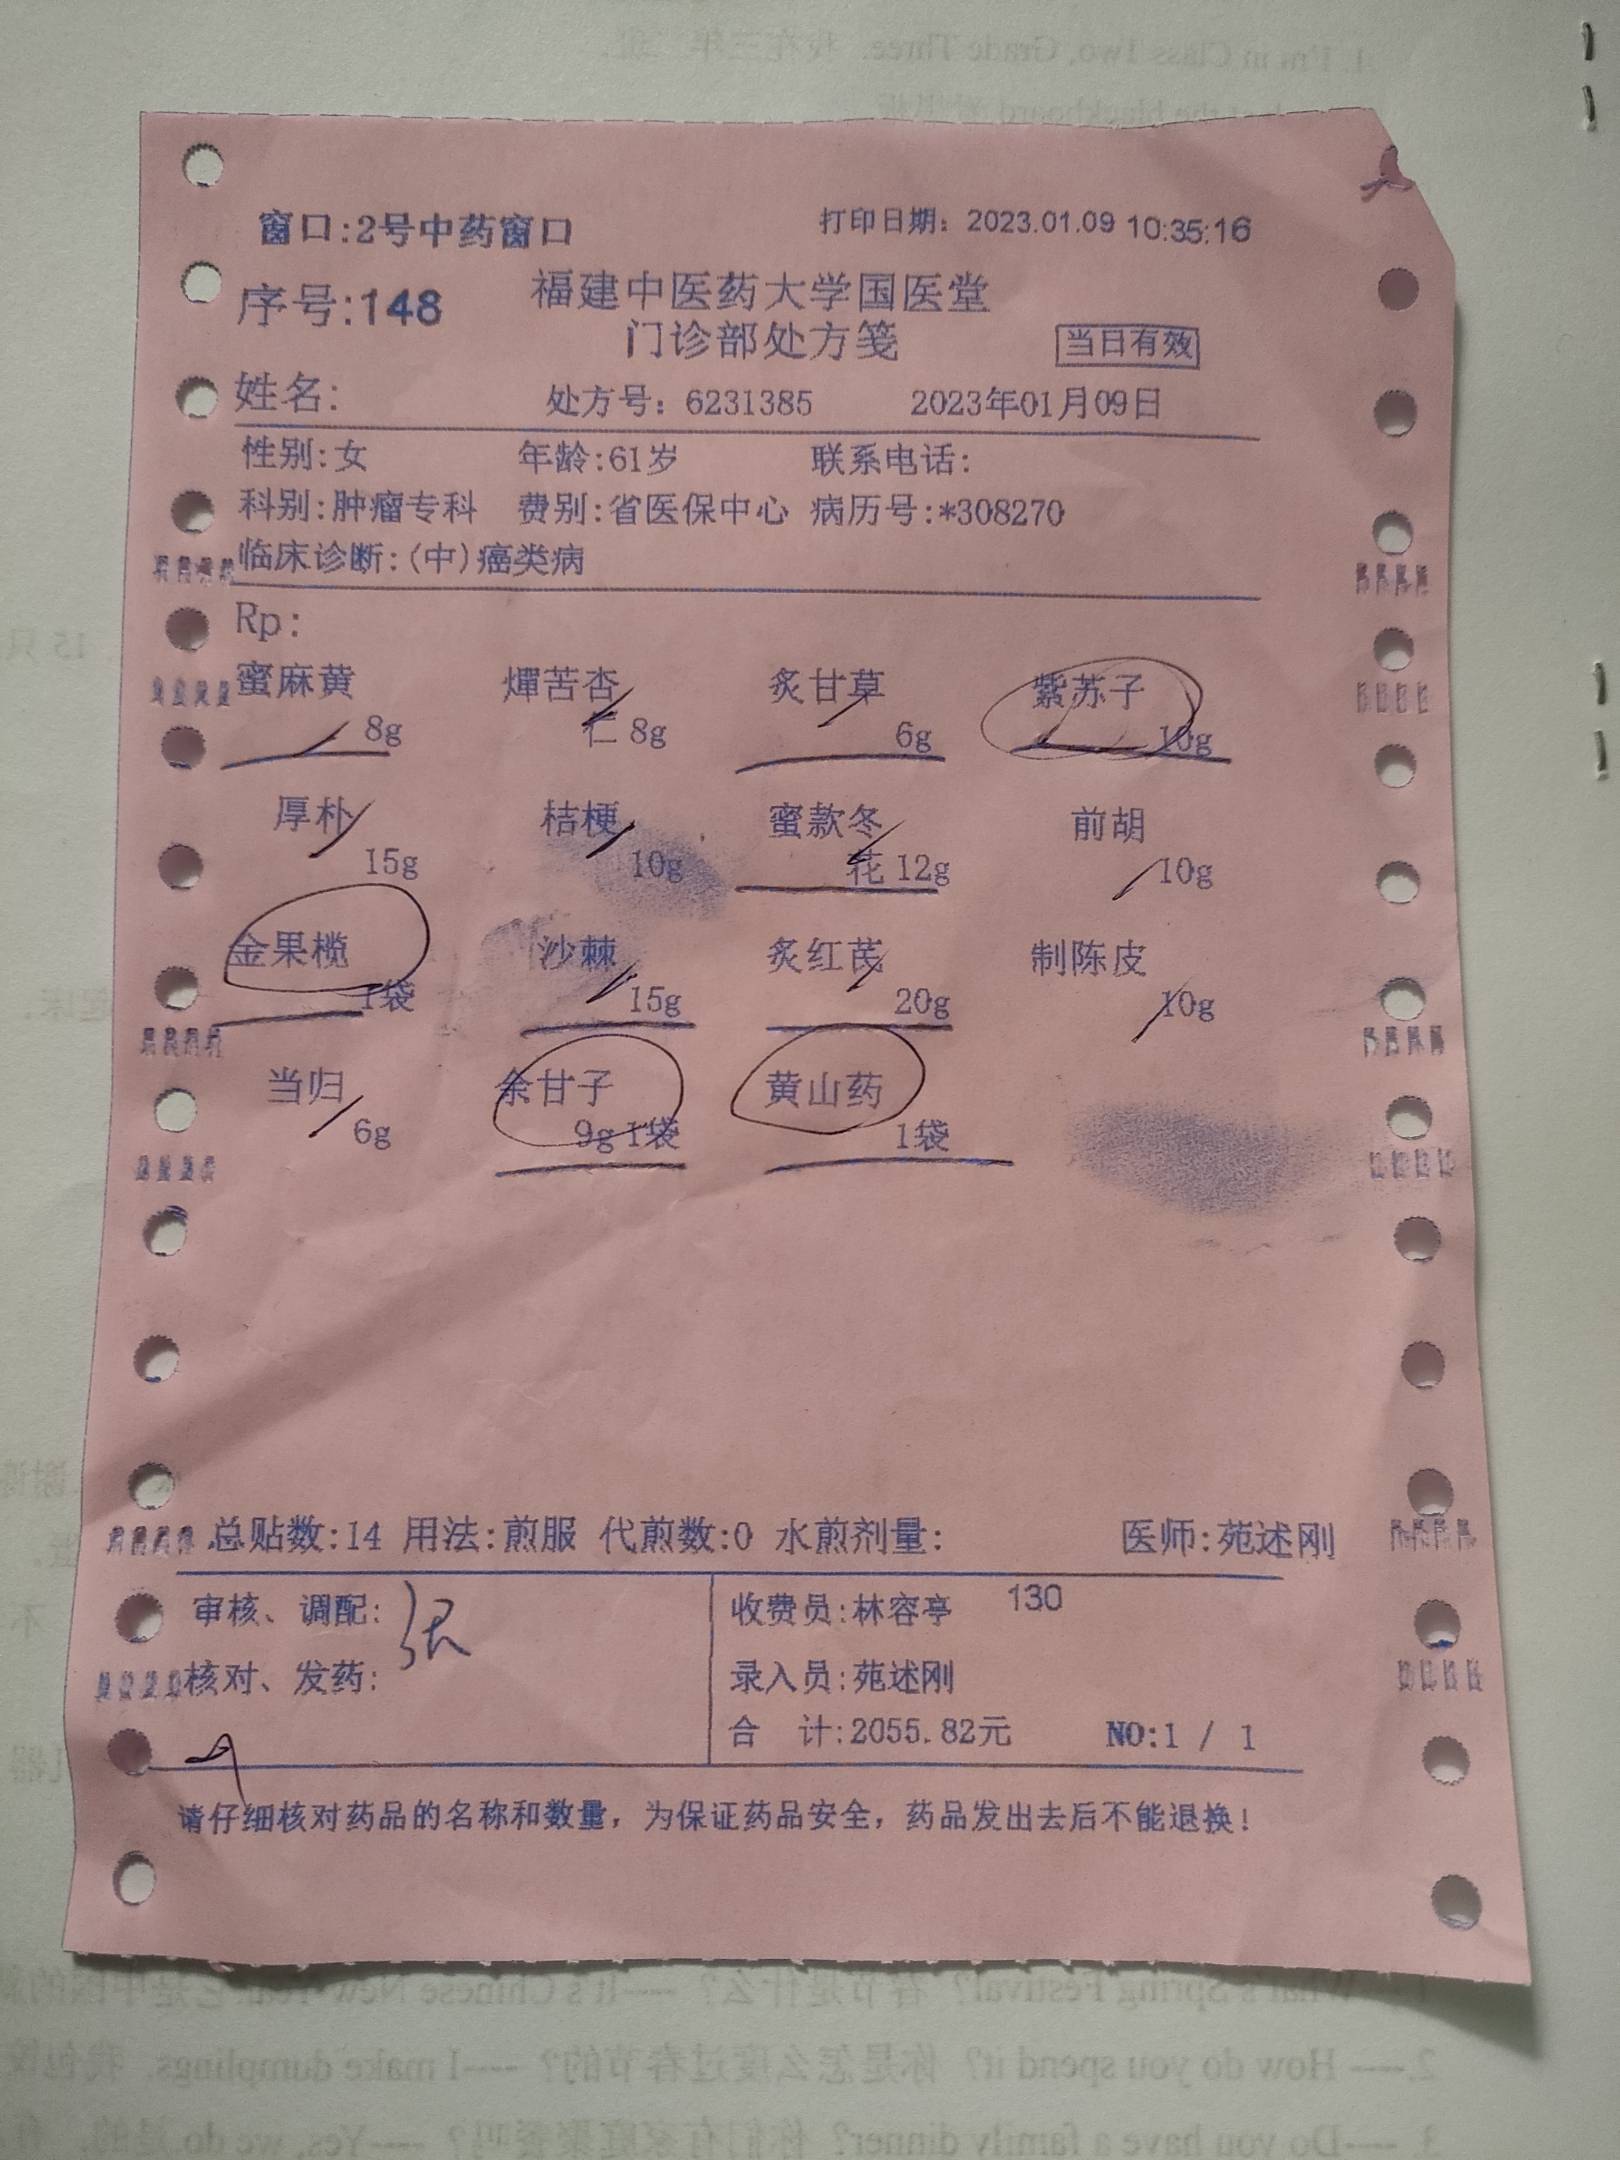 窗口:2号中药窗口 打印日期: 2023.01.09 10:35:16
序号:148 福建中医药大学国医堂
门诊部处方笺 当日有效
姓名: 处方号: 6231385 2023年01月09日
性别:女 年龄:61岁 联系电话:
科别:肿瘤专科 费别:省医保中心 病历号:*308270
临床诊断:(中)癌类病
Rp:
蜜麻黄 燀苦杏 炙甘草 紫苏子
8g 仁 8g 6g 10g
厚朴 桔梗 蜜款冬 前胡
15g 10g 花 12g 10g
金果榄 沙棘 炙红芪 制陈皮
1袋 15g 20g 10g
当归 余甘子 黄山药
6g 9g 1袋 1袋
总贴数:14 用法:煎服 代煎数:0 水煎剂量: 医师:苑述刚
审核、调配: 张 收费员:林容亭 130
核对、发药: 录入员:苑述刚
合 计:2055.82元 NO:1 / 1
请仔细核对药品的名称和数量，为保证药品安全，药品发出去后不能退换!
4. I'm in Class Two, Grade Three. 我在三年二班.
2.---- How do you spend it? 你是怎么度过春节的? ----I make dumplings. 我包饺
3. ----Do you have a family dinner? 你们有家庭聚餐吗? ----Yes, we do. 是的, 有